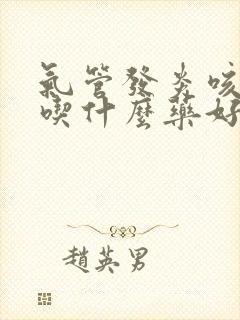 氣管發炎咳
喫什麼藥好
趙英男